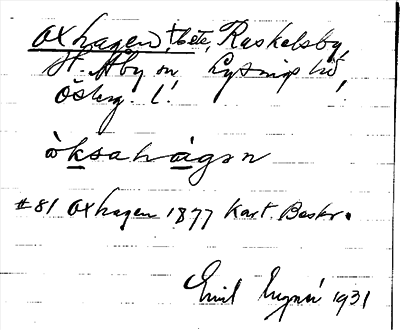 Oxhagen, bete, Raskelsby,
St. Åby sn, Lysings hd,
Österg. l.
òksahàgen
#81 Oxhagen 1877 Kart. Beskr.
Emil 1931